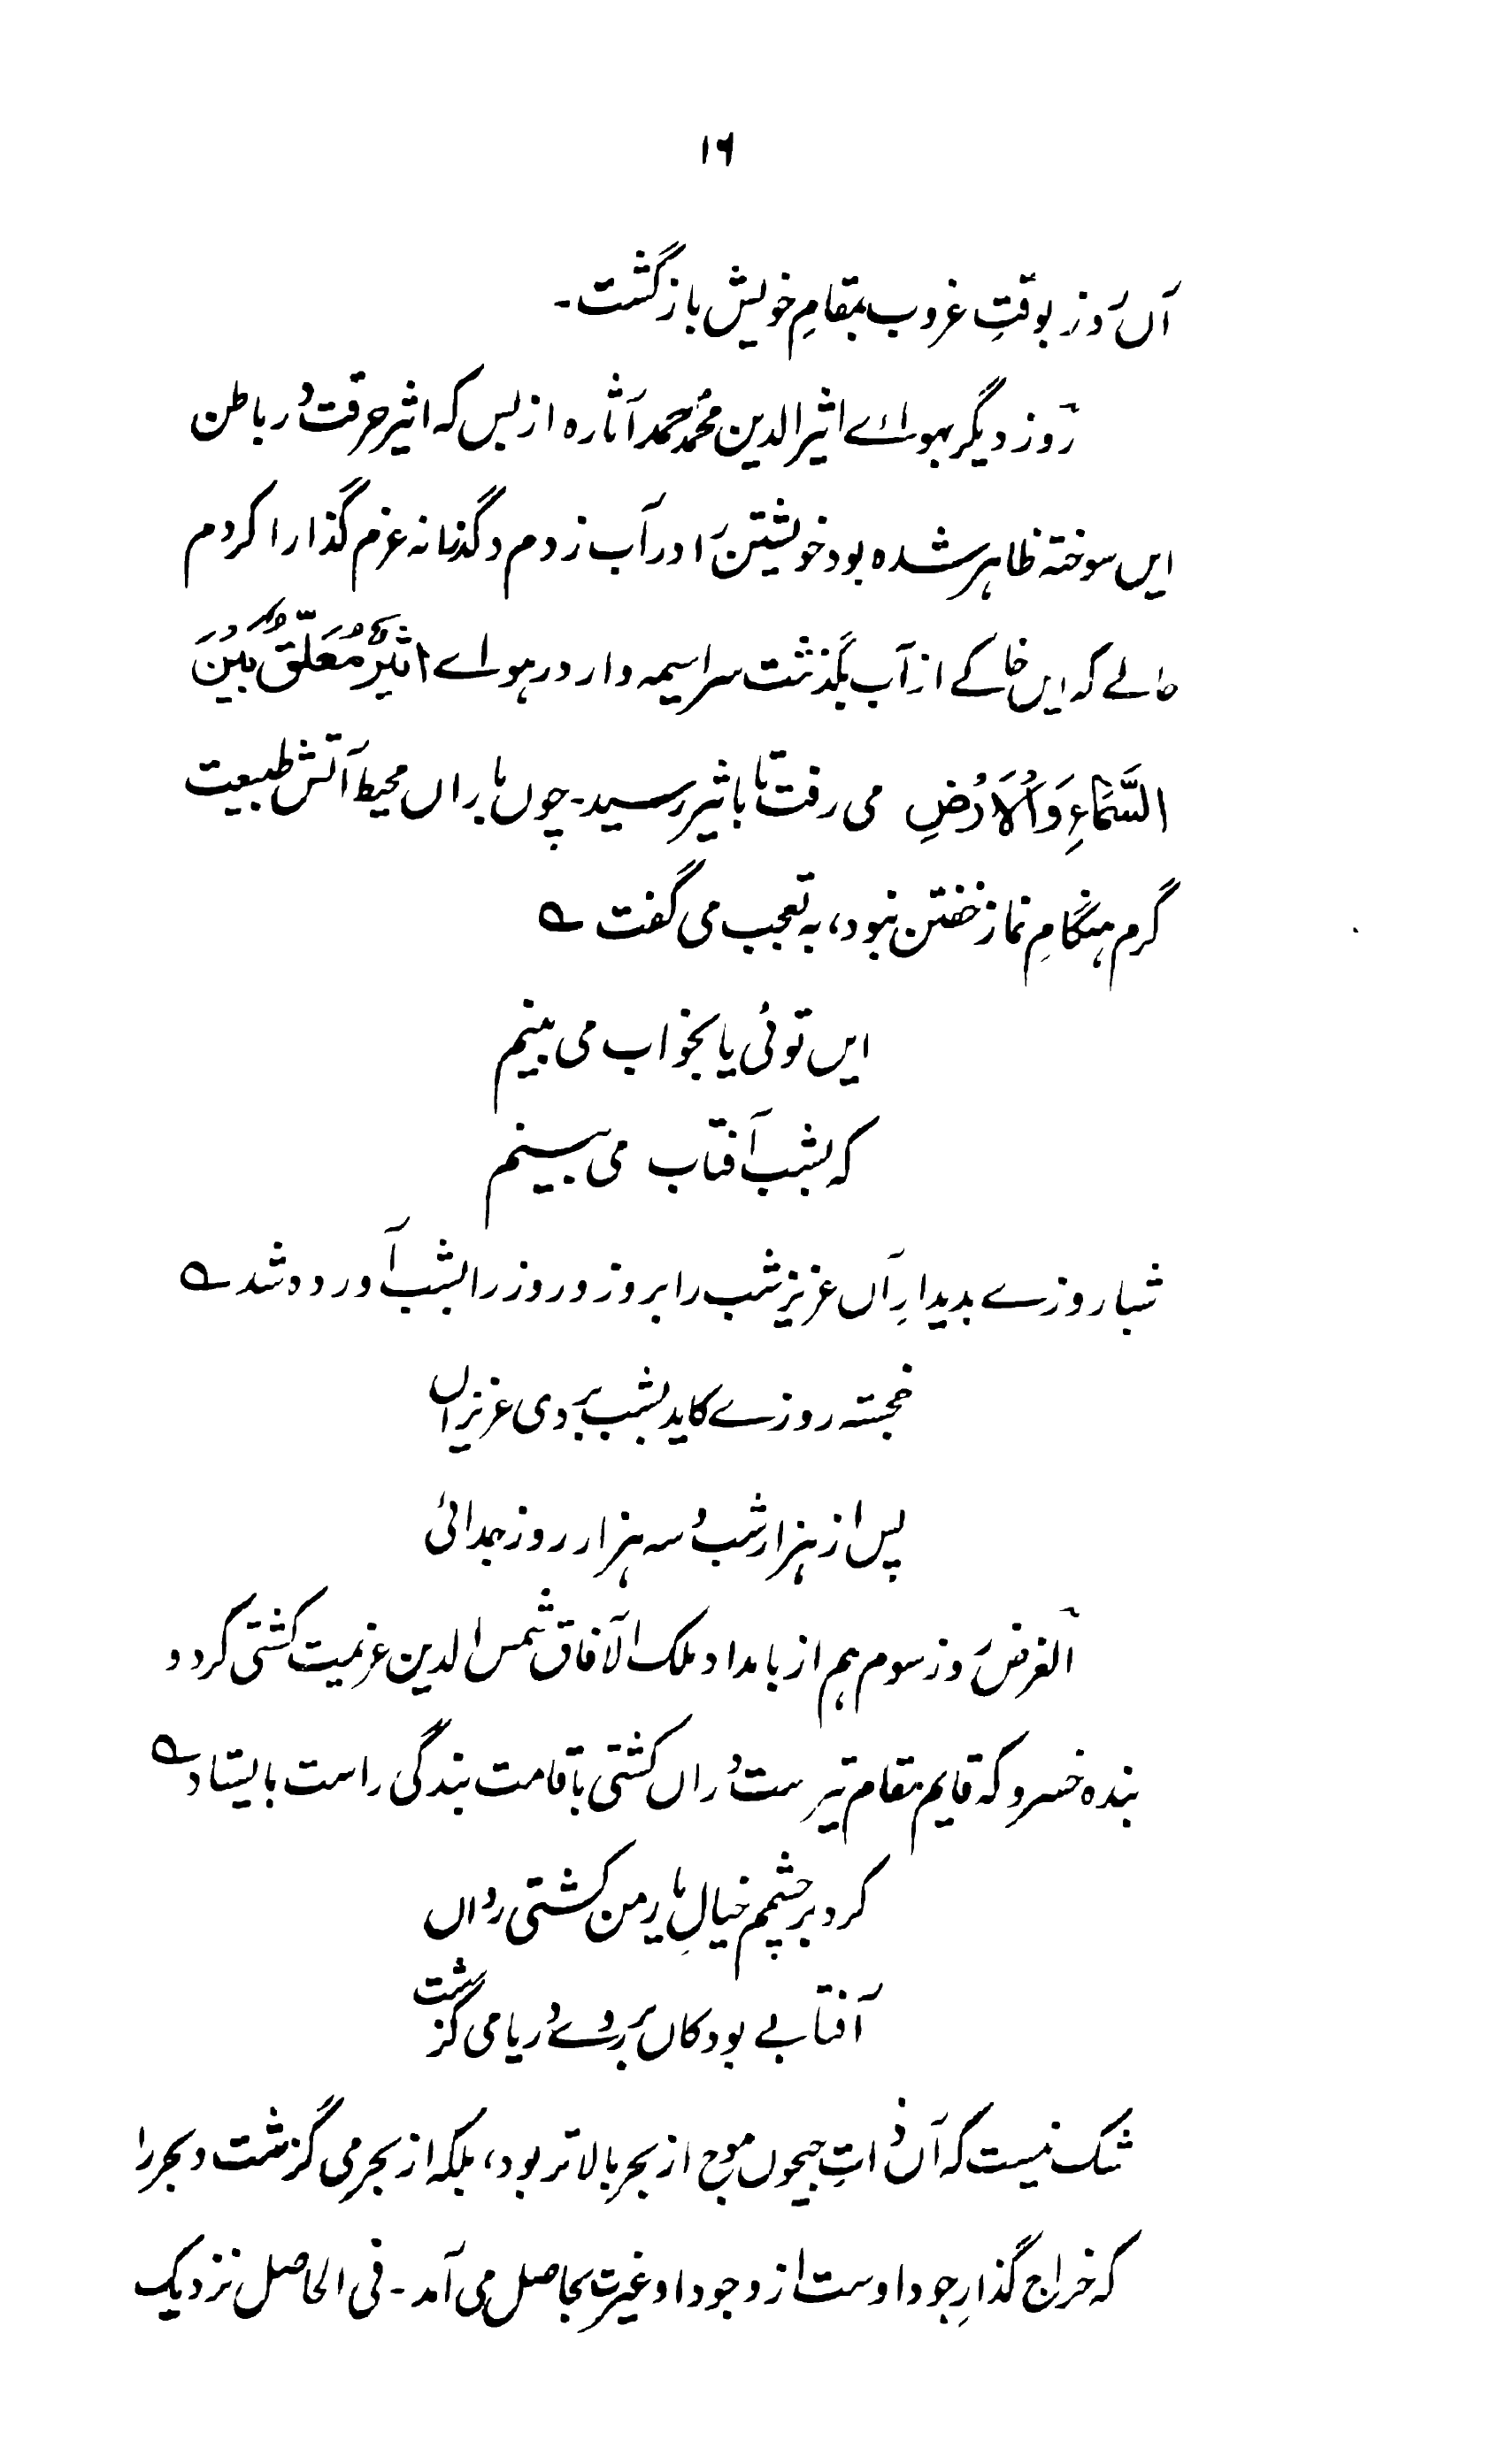 ۱۶
آں روز بوقتِ غروب بمقامِ خویش بازگشت۔
روز دیگر بہواے اثیر الدین محمد آثارہ ازبس کہ اثیر حرقت در باطن
ایں سوختہ ظاہر شدہ بود خویشتن را در آب زدم و گذرانہ عزم گذارا کردم
حالے کہ ایں خاکے از آب بگذشت سراسیمہ وار در ہواے اَثِیْرٌ مُعَلَّقٌ بَیْنَ
السَّمَاءِ وَالْاَرْضِ می رفت تا باثیر رسید۔ چوں باراں محیط آتش طبیعت
گرم ہنگامِ نماز خفتن نبود، بہ تعجب می گفت ؎
ایں توئی یا بخواب می بینم
کہ بشب آفتاب می بینم
شباروزے بدیدارِ آں عزیز شب را بروز و روز را بشب آوردہ شد ؎
خجستہ روزے کاید بشب بروی عزیزاں
پس از ہزار شب و سہ ہزار روز جدائی
الغرض روز سوم ہم از بامداد ملک الآفاق شمس الدین عزیمت کشتی کرد و
بندہ خسرو کہ قایم مقام تیر ست دراں کشتی باقامت بندگی راست بایستاد ؎
کرد بر چشمم خیالِ یار من کشتی رواں
آفتابے بود کاں بر روے دریا می گزشت
شک نیست کہ آں ذاتِ جیحوں موج از بحر بالاتر بود، بلکہ از بحر می گزشت و بحر را
کہ خراج گذارِ جود اوست از وجود او غیرت بحاصل می آمد۔ فی الحاصل نزدیک